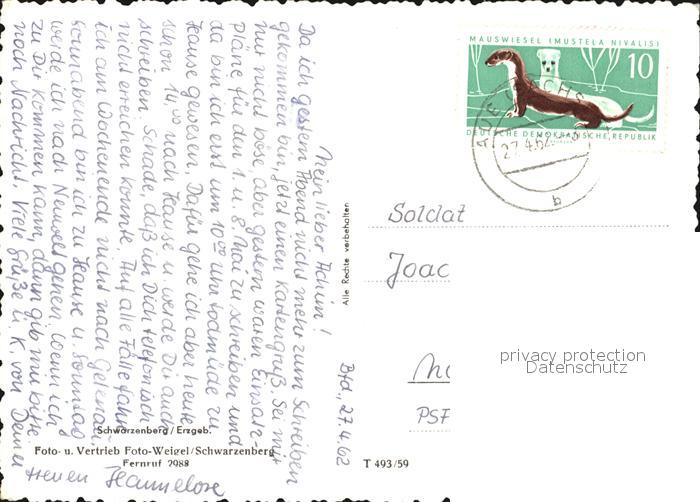 Bfd., 27.4.62
Mein lieber Achim!
Da ich gestern Abend nicht mehr zum Schreiben
gekommen bin, jetzt einen Kartengruß. Sei mir
nur nicht böse, aber gestern waren Einsatz-
pläne für den 1. u. 8. Mai zu schreiben und
da bin ich erst um 10⁰⁰ Uhr todmüde zu
Hause gewesen. Dafür gehe ich aber heute
schon 14⁰⁰ nach Hause u. werde Dir auch
schreiben. Schade, daß ich Dich telefonisch
nicht erreichen konnte. Auf alle Fälle fahre
ich am Wochenende nicht nach
Sonnabend bin ich zu Hause u. Sonntag
werde ich nach Neuwelt gehen. Wenn ich
zu Dir kommen kann, dann gib mir bitte
noch Nachricht. Viele Grüße u. K. von Deiner
treuen Hannelore
Schwarzenberg/Erzgeb.
Foto- u. Vertrieb Foto-Weigel/Schwarzenberg
Fernruf 2988
T 493/59
Alle Rechte vorbehalten
MAUSWIESEL (MUSTELA NIVALIS)
10
DEUTSCHE DEMOKRATISCHE REPUBLIK
27.4.62
b
Soldat
Joac
PSF
privacy protection
Datenschutz